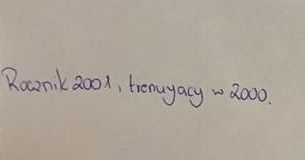 Rocznik 2001, trenujący w 2000.